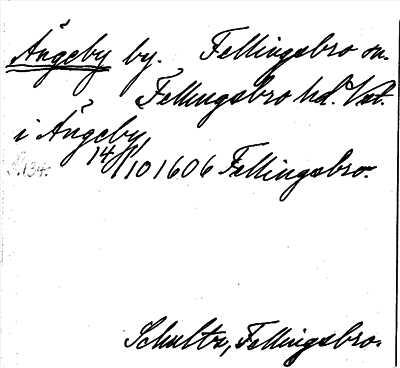 Ängeby by. Fellingsbro sn.
Fellingsbro hd. Vst.
i Ängeby
14/10 1606 Fellingsbro.
134.
Schultz, Fellingsbro.